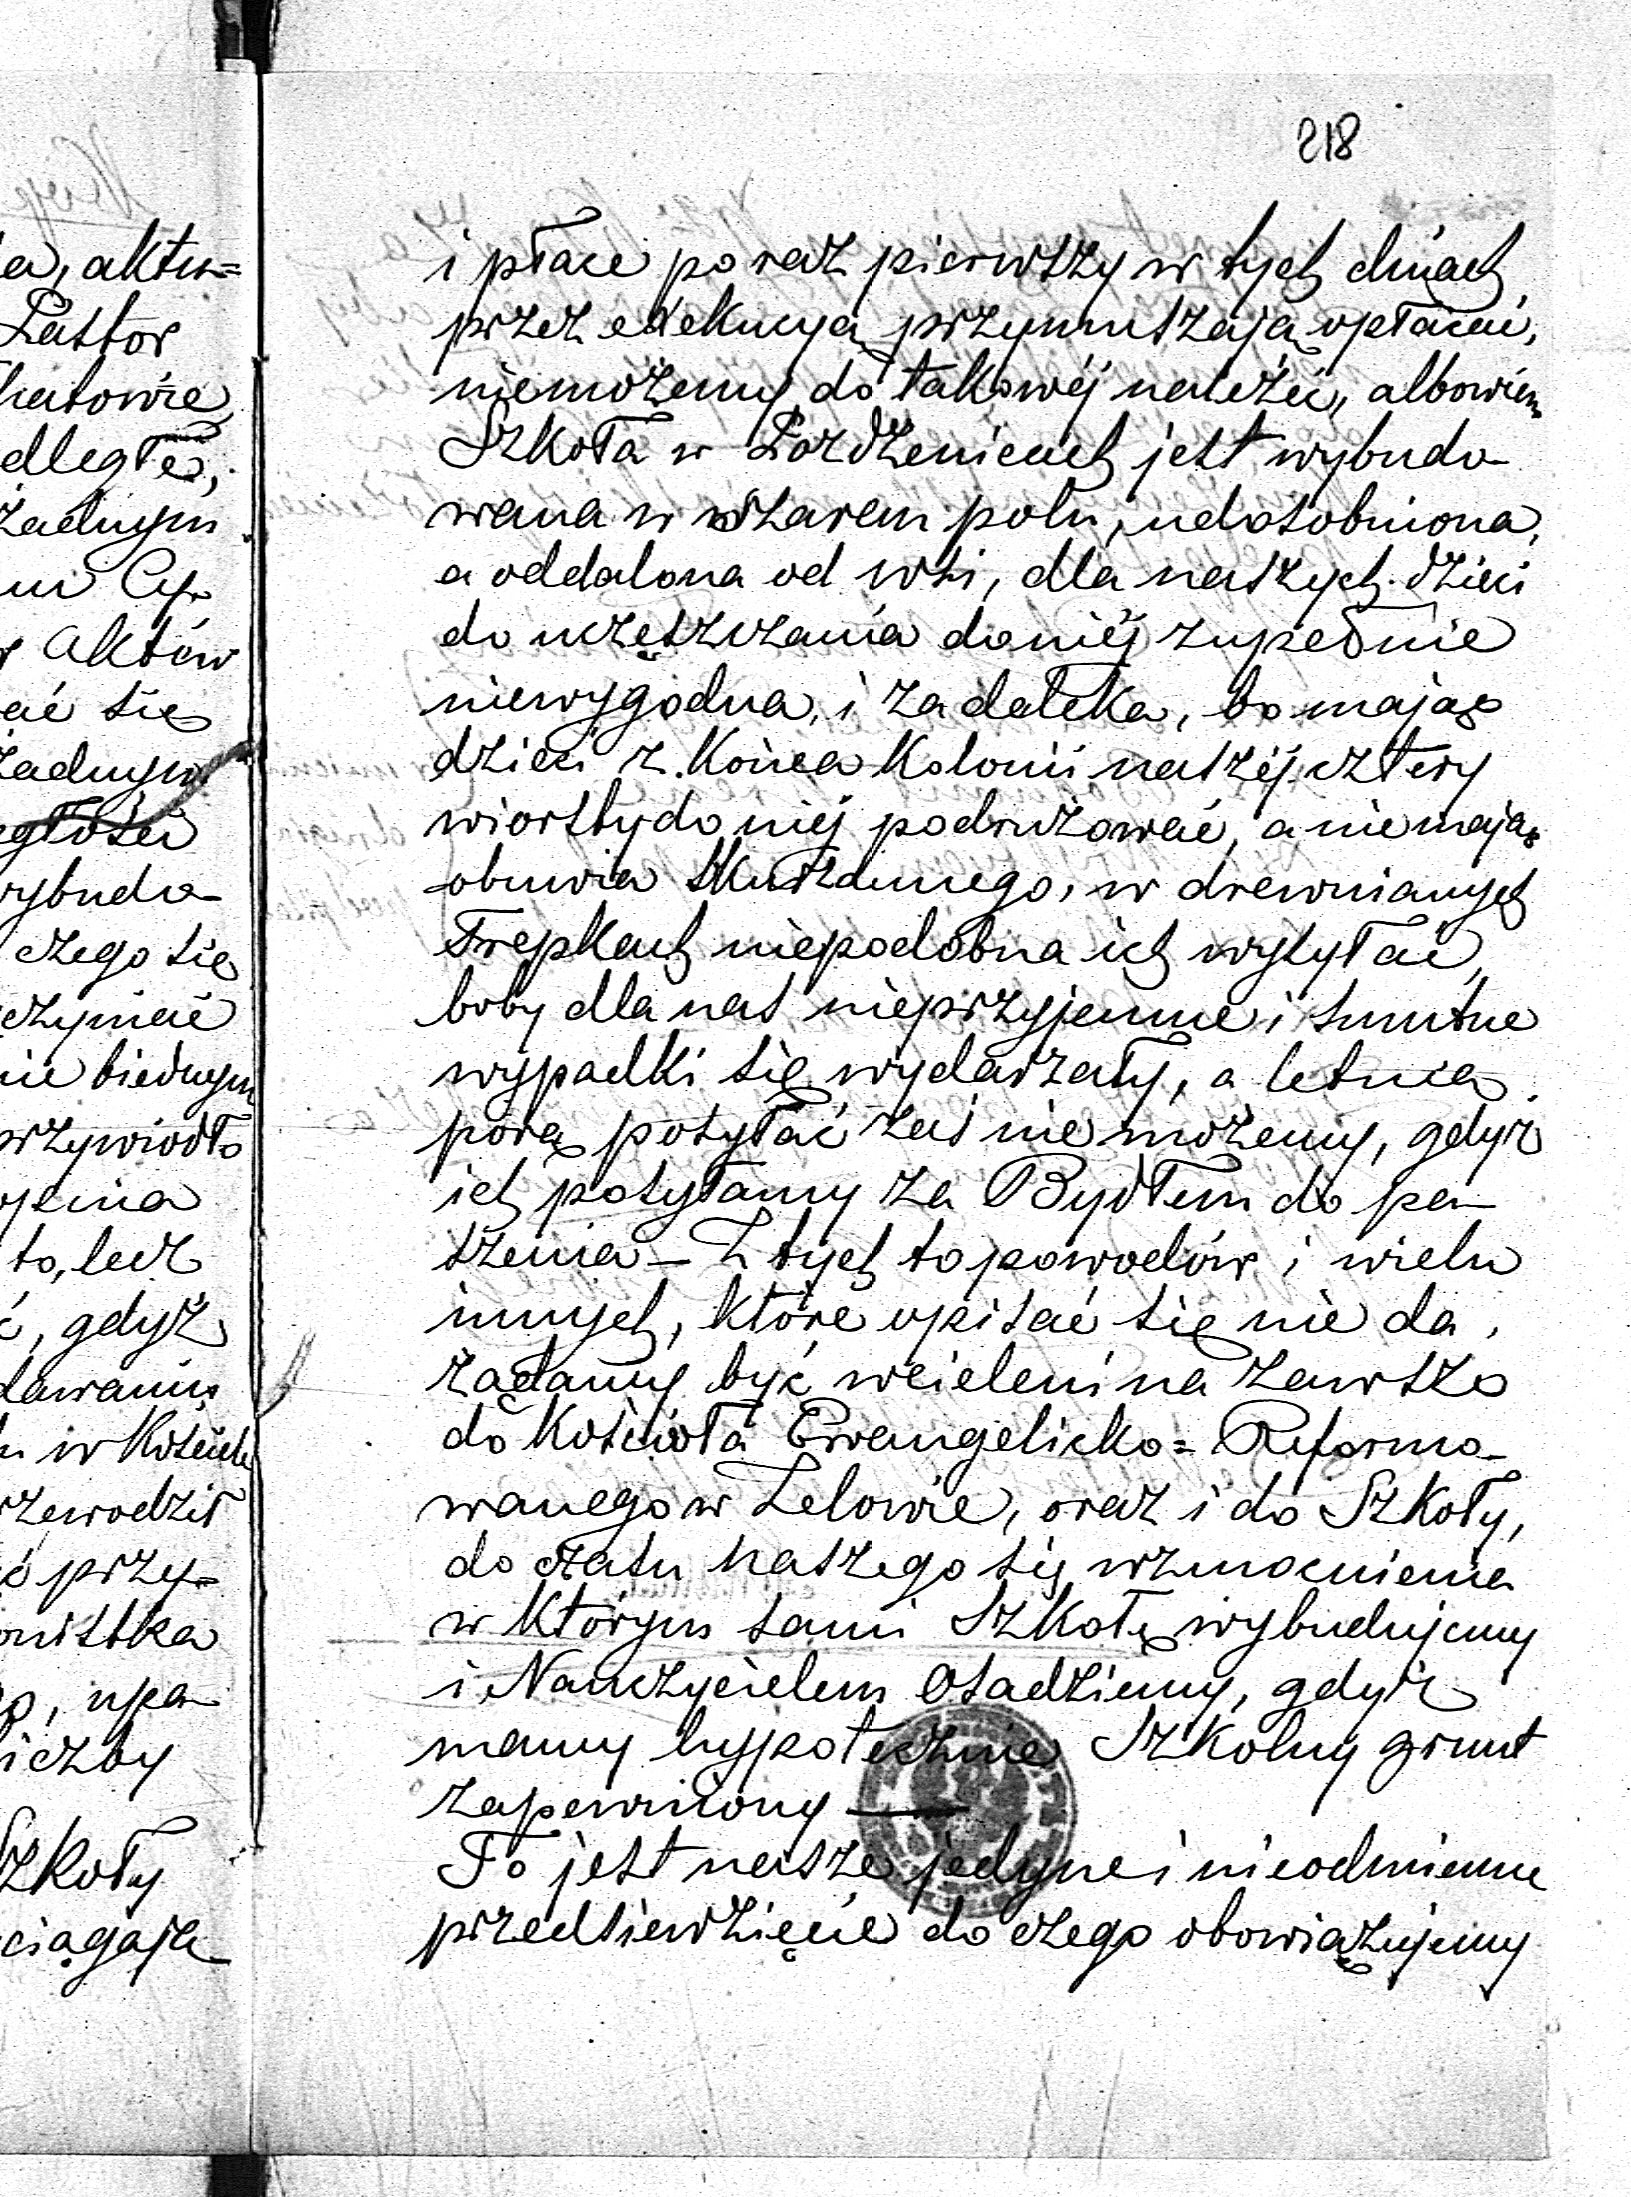 218
i płace po raz pierwszy w tych dniach
przez exekucyą przymuszają opłacać,
niemożemy do takowéj należéć, albowiem
Szkoła w Pozdzenicach jest wybudo-
wana w szarem polu, udosobniona,
a oddalona od wsi, dla naszych dzieci
do uczęszczania do niéj zupełnie
niewygodna, i za daleka, bo mając
dzieci z Końca Kolonii naszéj cztery
wiorsty do niéj podrużować, a nie mając
obuwia Skurzannego, w drewnianych
Trepkach niepodobna ich wysyłać,
boby dla nas nieprzyjemne i smutne
wypadki się wydarzały, a letnią
porą posyłać zaś nie możemy, gdyż
ich posyłamy za Bydłem do pa-
szenia – Z tych to powodów i wielu
innych, które opisać się nie da,
żądamy być wcieleni na zawsze
do Kościoła Ewangelicko= Reformo-
wanego w Zelowie, oraz i do Szkoły,
do czasu naszego się wzmocnienia
w Którym sami Szkołę wybudujemy
i Nauczycielem Osadziemy, gdyż
mamy hypotecznie Szkolny grunt
zapewniony —
To jest nasze jedyne i nieodmienne
przedsiewzięcie do czego obowiązujemy
aktu=
Pastor
dległe,
żadnym
Aktów
się
żadnym
egłości
czego się
czynieć
biednym
przywiodło
to, lecz
gdyż
w Kościele
przy-
upa-
iczby
Szkoły
ciągają